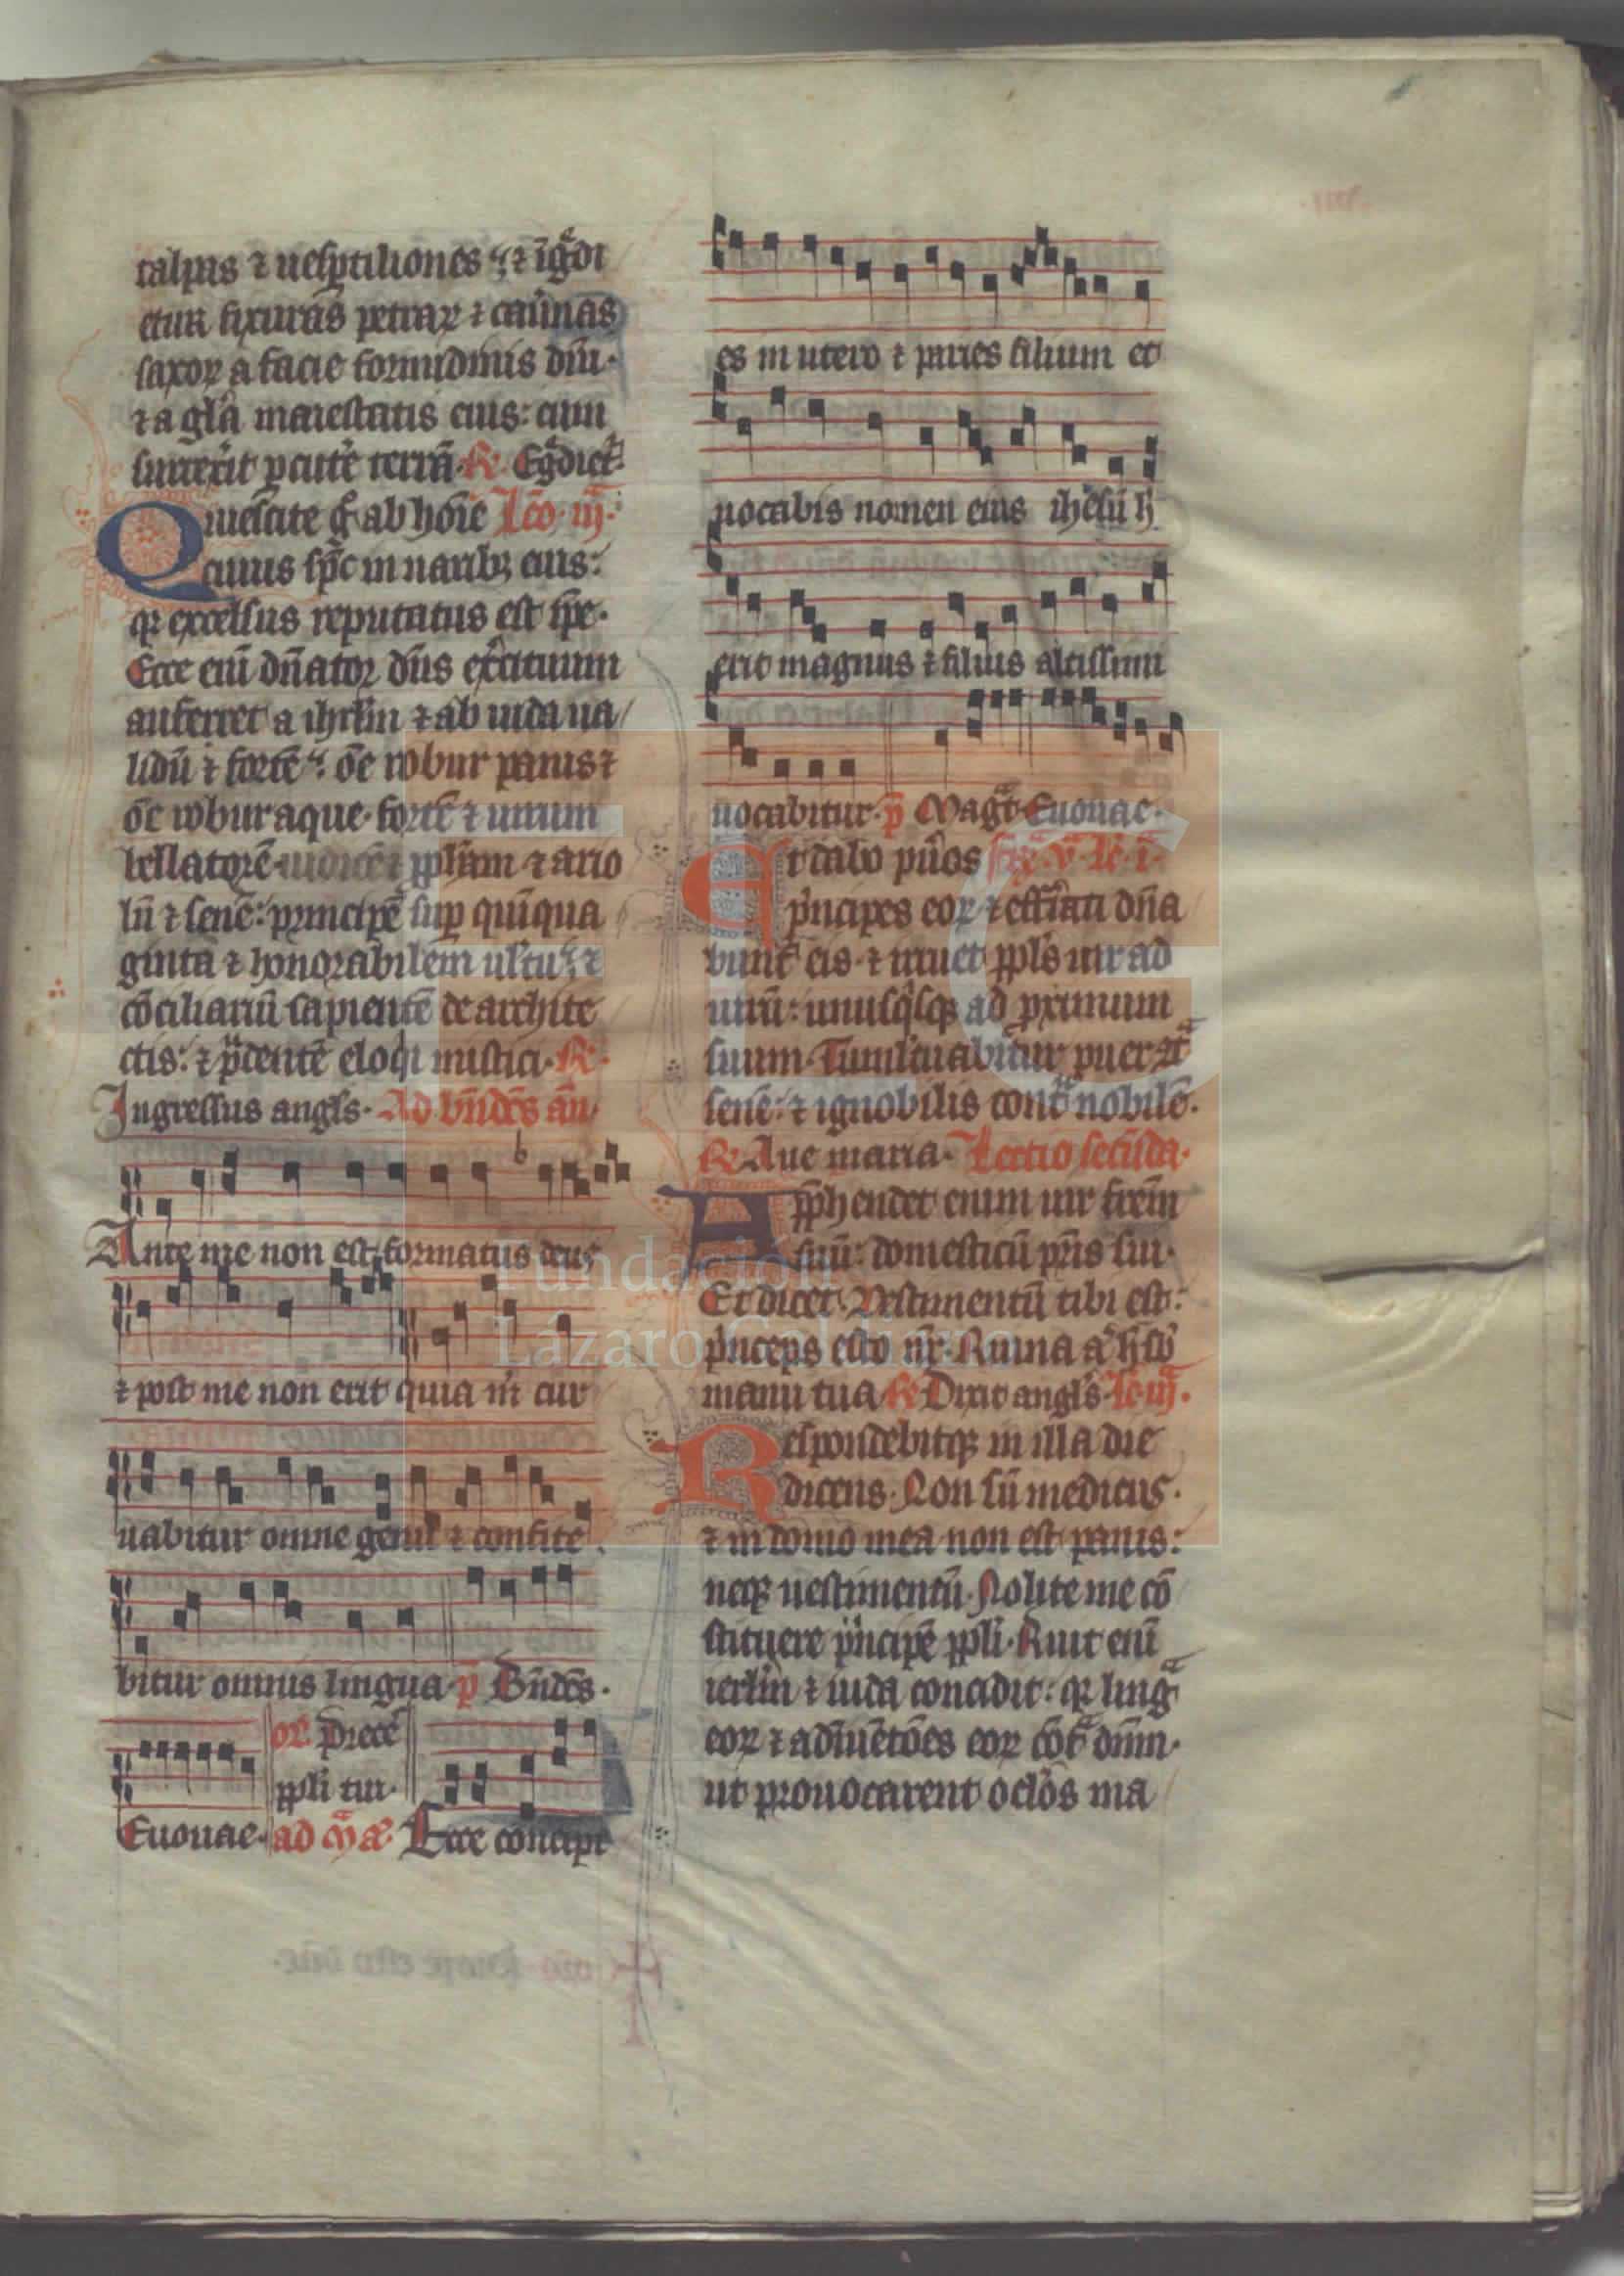 talpas ⁊ uesp̱tiliones ⁊ ig̃di
etur fixuras petraꝝ ⁊ cau̾nas
saxoꝝ a facie formidinis dñi·
⁊ a gľa maiestatis eius: cum
surrexit ꝑcute̾ terrã. ℟. Eg̃diet̃
Quiescite g̊ ab hoĩe Leõ. iij.
cuius sp̃c in narib; eius:
qꝛ excelsus reputatus est ip̃e·
Ecce eni̅ dñator dñs exc̾ituum
auferret a ihrľm ⁊ ab iuda ua
lidũ ⁊ fortẽ. õe robur panis ⁊
õe robur aque· fortẽ ⁊ uirum
bellatorẽ· iudicẽ ⁊ ꝓpħam ⁊ ario
lũ ⁊ senẽ: principẽ suꝑ quĩqua
ginta ⁊ honorabilem uľtu ⁊
cõciliariũ sapientẽ de archite
ctis: ⁊ p̃dentẽ eloqi mistici. ℟.
Ingressus angľs. Ad bñdc̃s añ.
Ante me non est formatus deus
⁊ post me non erit quia m̃ cur
uabitur omne genu ⁊ confite
bitur omnis lingua. p̃ Bñdc̃s.
or̃. Prece̅
ppľi tui·
Euouae. ad mã. Ecce concipi
es in utero ⁊ paries filium et
uocabis nomen eius ihesũ ħ
erit magnus ⁊ filius altissimi
uocabitur. p̃ Magt̃. Euouae.
Et dabo pu̾os fer̃. v̄. lc̃. i.
p̾ncipes eoꝝ ⁊ effĩati dña
bunt̃ eis. ⁊ irruet ppľs uir ad
uirũ: unusq̾sqꝫ ad ꝓximum
suum. Tumľtuabitur puer 9t̃
senẽ: ⁊ ignobilis cont̃ nobilẽ.
℟. Aue maria. Lectio secũda.
Apꝓhendet enim uir frẽm
suũ: domesticũ pr̃is sui.
Et dicet. Uestimentũ tibi est:
p̾nceps esto nr̃. Ruina aͥ ħ sb̾
manu tua ℟. Dixit angľs. lc̃ iij.
Respondebitqꝫ in illa die
dicens. Non sũ medicus.
⁊ in domo mea non est panis:
neqꝫ uestimentũ. Nolite me cõ
stituere p̾ncipẽ ppľi. Ruit eni̅
ierľm ⁊ iuda concidit: qꝛ ling̃
eoꝝ ⁊ adĩuẽtões eoꝝ cõt̃ dñm.
ut prouocarent ocľos ma
Fundación
Lázaro Galdiano